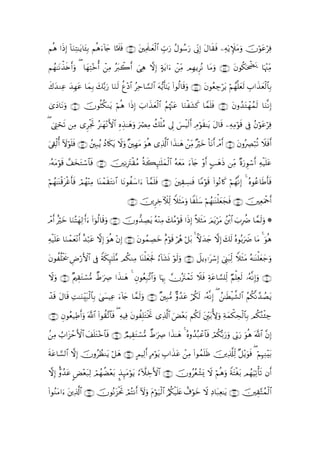 فِرْعَوْنَ وَمَلَإِيْهِۦ فَقَالَ إِنِّى رَسُولُ رَبِّ ٱلْعَٰلَمِينَ ۝٤٦ فَلَمَّا جَآءَهُم بِـَٔايَٰتِنَآ إِذَا هُم
مِّنْهَا يَضْحَكُونَ ۝٤٧ وَمَا نُرِيهِم مِّنْ ءَايَةٍ إِلَّا هِىَ أَكْبَرُ مِنْ أُخْتِهَا ۖ وَأَخَذْنَٰهُم
بِٱلْعَذَابِ لَعَلَّهُمْ يَرْجِعُونَ ۝٤٨ وَقَالُوا۟ يَٰٓأَيُّهَ ٱلسَّاحِرُ ٱدْعُ لَنَا رَبَّكَ بِمَا عَهِدَ عِندَكَ
إِنَّنَا لَمُهْتَدُونَ ۝٤٩ فَلَمَّا كَشَفْنَا عَنْهُمُ ٱلْعَذَابَ إِذَا هُمْ يَنكُثُونَ ۝٥٠ وَنَادَىٰ
فِرْعَوْنُ فِى قَوْمِهِۦ قَالَ يَٰقَوْمِ أَلَيْسَ لِى مُلْكُ مِصْرَ وَهَٰذِهِ ٱلْأَنْهَٰرُ تَجْرِى مِن تَحْتِىٓ ۖ
أَفَلَا تُبْصِرُونَ ۝٥١ أَمْ أَنَا۠ خَيْرٌ مِّنْ هَٰذَا ٱلَّذِى هُوَ مَهِينٌ وَلَا يَكَادُ يُبِينُ ۝٥٢ فَلَوْلَآ أُلْقِىَ
عَلَيْهِ أَسْوِرَةٌ مِّن ذَهَبٍ أَوْ جَآءَ مَعَهُ ٱلْمَلَٰٓئِكَةُ مُقْتَرِنِينَ ۝٥٣ فَٱسْتَخَفَّ قَوْمَهُۥ
فَأَطَاعُوهُ ۚ إِنَّهُمْ كَانُوا۟ قَوْمًا فَٰسِقِينَ ۝٥٤ فَلَمَّآ ءَاسَفُونَا ٱنتَقَمْنَا مِنْهُمْ فَأَغْرَقْنَٰهُمْ
أَجْمَعِينَ ۝٥٥ فَجَعَلْنَٰهُمْ سَلَفًا وَمَثَلًا لِّلْـَٔاخِرِينَ ۝٥٦
۞ وَلَمَّا ضُرِبَ ٱبْنُ مَرْيَمَ مَثَلًا إِذَا قَوْمُكَ مِنْهُ يَصِدُّونَ ۝٥٧ وَقَالُوٓا۟ ءَأَٰلِهَتُنَا خَيْرٌ أَمْ
هُوَ ۚ مَا ضَرَبُوهُ لَكَ إِلَّا جَدَلًۢا ۚ بَلْ هُمْ قَوْمٌ خَصِمُونَ ۝٥٨ إِنْ هُوَ إِلَّا عَبْدٌ أَنْعَمْنَا عَلَيْهِ
وَجَعَلْنَٰهُ مَثَلًا لِّبَنِىٓ إِسْرَٰٓءِيلَ ۝٥٩ وَلَوْ نَشَآءُ لَجَعَلْنَا مِنكُم مَّلَٰٓئِكَةً فِى ٱلْأَرْضِ يَخْلُفُونَ
۝٦٠ وَإِنَّهُۥ لَعِلْمٌ لِّلسَّاعَةِ فَلَا تَمْتَرُنَّ بِهَا وَٱتَّبِعُونِ ۚ هَٰذَا صِرَٰطٌ مُّسْتَقِيمٌ ۝٦١ وَلَا
يَصُدَّنَّكُمُ ٱلشَّيْطَٰنُ ۖ إِنَّهُۥ لَكُمْ عَدُوٌّ مُّبِينٌ ۝٦٢ وَلَمَّا جَآءَ عِيسَىٰ بِٱلْبَيِّنَٰتِ قَالَ قَدْ
جِئْتُكُم بِٱلْحِكْمَةِ وَلِأُبَيِّنَ لَكُم بَعْضَ ٱلَّذِى تَخْتَلِفُونَ فِيهِ ۖ فَٱتَّقُوا۟ ٱللَّهَ وَأَطِيعُونِ ۝٦٣ إِنَّ
ٱللَّهَ هُوَ رَبِّى وَرَبُّكُمْ فَٱعْبُدُوهُ ۚ هَٰذَا صِرَٰطٌ مُّسْتَقِيمٌ ۝٦٤ فَٱخْتَلَفَ ٱلْأَحْزَابُ مِنۢ
بَيْنِهِمْ ۖ فَوَيْلٌ لِّلَّذِينَ ظَلَمُوا۟ مِنْ عَذَابِ يَوْمٍ أَلِيمٍ ۝٦٥ هَلْ يَنظُرُونَ إِلَّا ٱلسَّاعَةَ
أَن تَأْتِيَهُم بَغْتَةً وَهُمْ لَا يَشْعُرُونَ ۝٦٦ ٱلْأَخِلَّآءُ يَوْمَئِذٍۭ بَعْضُهُمْ لِبَعْضٍ عَدُوٌّ إِلَّا
ٱلْمُتَّقِينَ ۝٦٧ يَٰعِبَادِ لَا خَوْفٌ عَلَيْكُمُ ٱلْيَوْمَ وَلَآ أَنتُمْ تَحْزَنُونَ ۝٦٨ ٱلَّذِينَ ءَامَنُوا۟